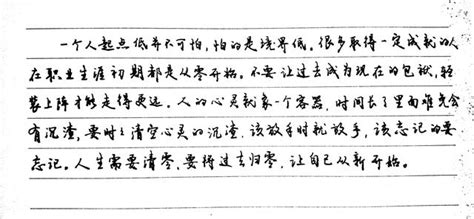 一个人起点低并不可怕，怕的是境界低。很多取得一定成就的人
在职业生涯初期都是从零开始。不要让过去成为现在的包袱，轻
装上阵才能走得更远。人的心灵就象一个容器，时间长了里面难免会
有沉渣，要时时清空心灵的沉渣，该放手时就放手，该忘记的要
忘记。人生需要清零，要将过去归零，让自己从新开始。